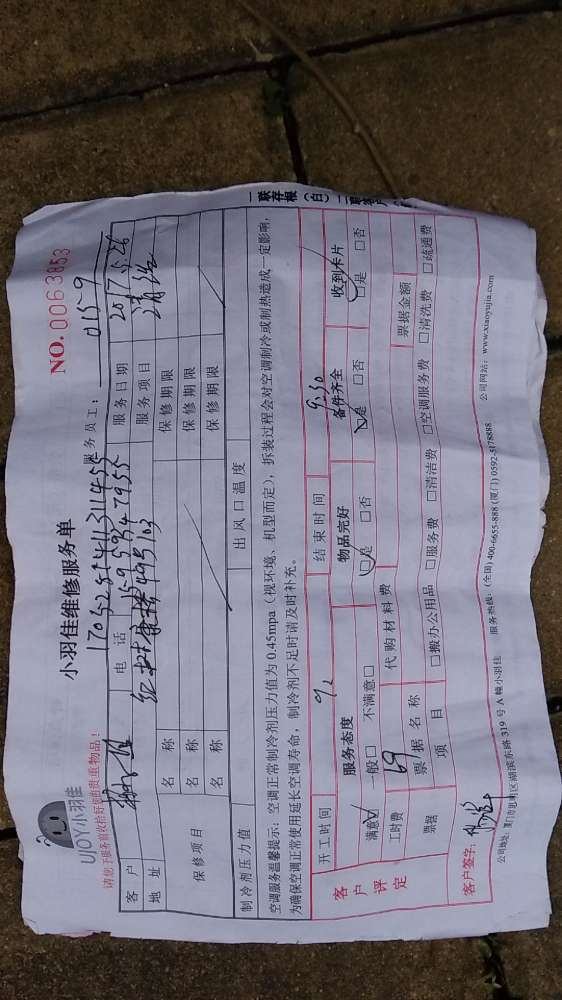 UJOY小羽佳
小羽佳维修服务单
NO.0063853
请您于服务前收拾好您的贵重物品！
服务员工： 0159
客户 电话 服务日期 2017.5.26
地址 服务项目 清洗
保修项目 名称 保修期限
名称 保修期限
名称 保修期限
制冷剂压力值 出风口温度
空调服务温馨提示：空调正常制冷剂压力值为0.45mpa（视环境、机型而定），拆装过程会对空调制冷或制热造成一定影响，
为确保空调正常使用延长空调寿命，制冷剂不足时请及时补充。
开工时间 结束时间 9:30
客户评定 服务态度 物品完好 备件齐全 收到卡片
满意□ 一般□ 不满意□ □是 □否 □是 □否 □是 □否
工时费 69 代购材料费
票据 票据名称 票据金额
项目 □搬办公用品 □服务费 □清洁费 □空调服务费 □清洗费 □疏通费
客户签字：
公司地址：厦门市思明区湖滨东路319号A幢小羽佳 服务热线：(全国) 400-6655-888 (厦门) 0592-5178888 公司网站：www.xiaoyujia.com
一联存根（白）二联客户